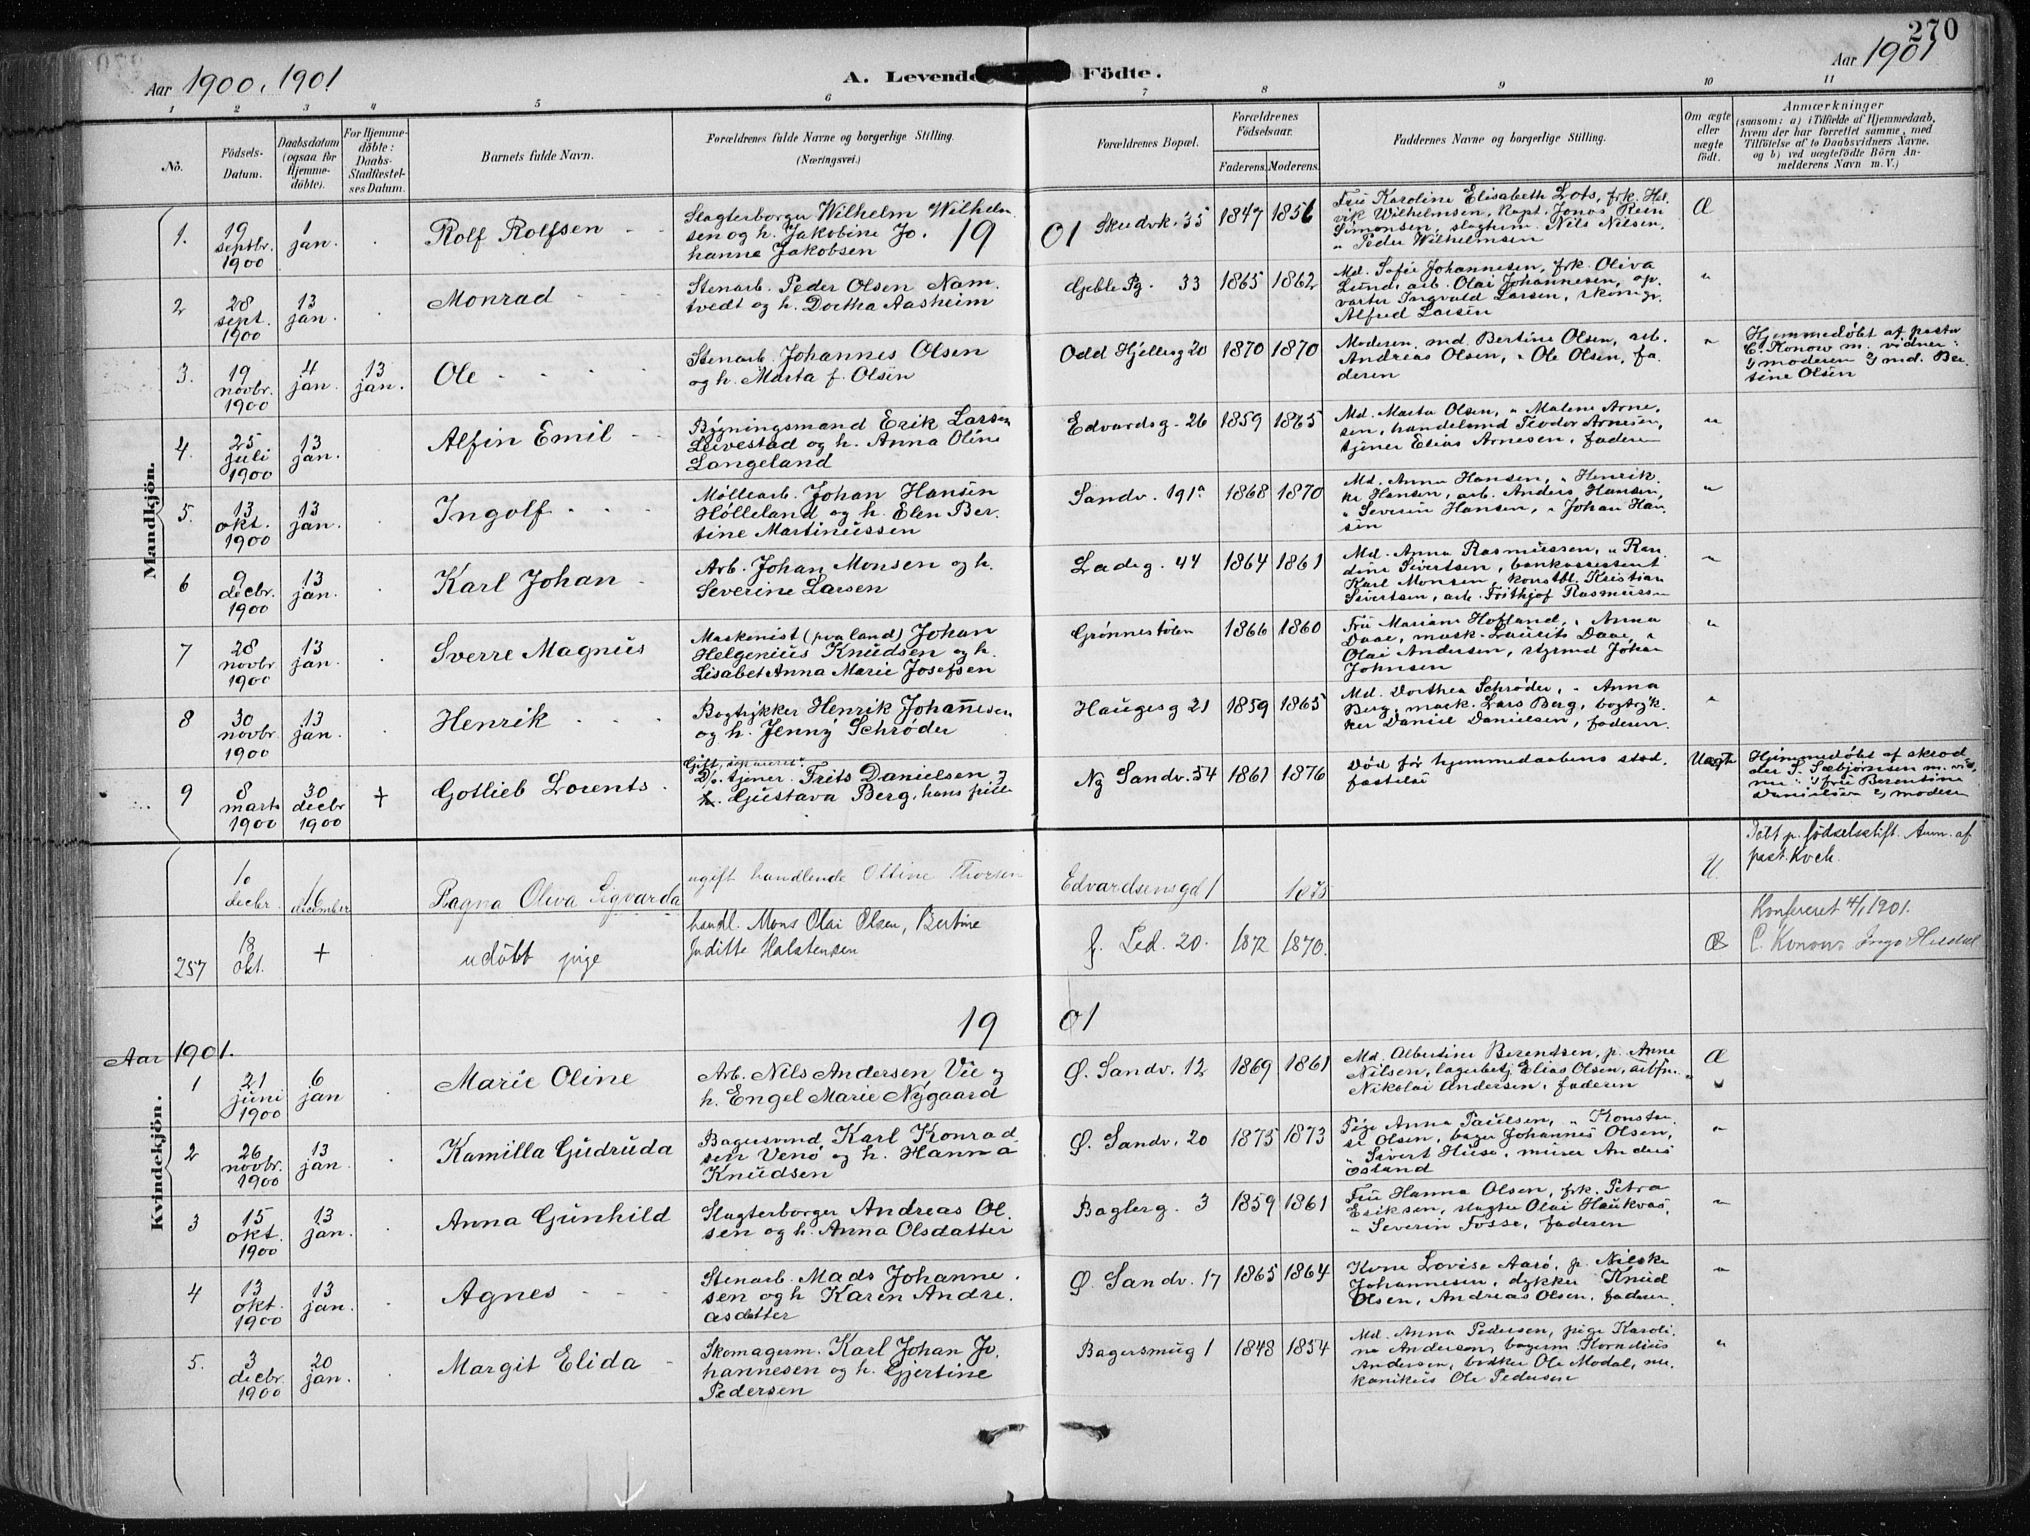 270
Aar 1900, 1901
A. Levende Födte.
Aar 1901
1 2 3 4 5 6 7 8 9 10 11
No.
Födsels-
Datum.
Daabsdatum
(ogsaa for
Hjemme-
döbte).
For Hjemme-
döbte:
Daabs-
Stadfæstel-
ses Datum.
Barnets fulde Navn.
Forældrenes fulde Navne og borgerlige Stilling.
(Næringsvei.)
Forældrenes Bopæl.
Forældrenes
Födselsaar.
Faderens. Moderens.
Faddernes Navne og borgerlige Stilling.
Om ægte
eller
uægte
födt.
Anmærkninger
(saasom: a) i Tilfælde af Hjemmedaab,
hvem der har forrettet samme, med
Tilföielse af to Daabsvidners Navne,
og b) ved uægtefödte Börn An-
melderens Navn m. V.)
Mandkjön.
19 01
1.
19
septbr.
1900
1
jan.
Rolf Rolfsen
Slagterborger Wilhelm Wilhelm
sen og h. Jakobine Jo.
hanne Jakobsen
Skudvk. 35
1847 1856
Fru Karoline Elisabeth Lots, frk. Hel
vik Wilhelmsen, kapt. Jonas Rein
Simonsen, slagterm. Nils Nilsen,
" Peder Wilhelmsen
Æ
2
28
sept.
1900
13
jan.
Monrad
Stenarb. Peder Olsen Nam
tvedt og h. Dortha Aasheim
Geble Pg. 33
1865 1862
Md. Sofie Johannesen, frk. Oliva
Lund, arb. Olai Johannesen, op
varter Ingvald Larsen, skomgr.
Alfred Larsen
"
3.
19
novbr.
1900
4
jan.
13
jan.
Ole
Stenarb. Johannes Olsen
og h. Marta f. Olsen
Odd Hjellesg 20
1870 1870
Moderen, md. Bertine Olsen, arb.
Andreas Olsen, " Ole Olsen, fa-
deren
"
Hjemmedøbt af pastor
C. Konow m. vidner:
1) moderen 2) md. Ber
tine Olsen
4.
25
juli
1900
13
jan.
Alfin Emil
Bygningsmand Erik Larsen
Leivestad og h. Anna Oline
Langeland
Edvardsg. 26
1859 1865
Md. Marta Olsen, " Malene Arne.
sen, handelsmd Teodor Arnesen,
tjener Elias Arnesen, faderen
"
5.
13
okt.
1900
13
jan.
Ingolf
Møllearb. Johan Hansen
Hølleland og h. Elen Ber.
tine Martinussen
Sandv. 191a
1868 1870
Md. Anna Hansen, " Henrik.
ke Hansen, arb. Anders Hansen,
" Severin Hansen, " Johan Han.
sen
"
6
9
decbr.
1900
13
jan.
Karl Johan
Arb. Johan Monsen og h.
Severine Larsen
Ladeg. 44
1864 1861
Md. Anna Rasmussen, " Ran
dine Sivertsen, bankassistent
Karl Monsen, konstbl. Kristian
Sivertsen, arb. Frithjof Rasmussen
"
7
28
novbr.
1900
13
jan.
Sverre Magnus
Maskinist (pva land) Johan
Helgenius Knudsen og h.
Lisabet Anna Marie Josefsen
Grønnestølen
1866 1860
Fru Mariam Hofland, " Anna
Daae, mask. Laurits Daae, "
Olai Andersen, styrmd Johan
Johnsen
"
8
30
novbr.
1900
13
jan.
Henrik
Bogtrykker Henrik Johannesen
og h. Jenny Schrøder
Haugesg 21
1859 1865
Md. Dorthea Schrøder, " Anna
Berg, mask. Lars Berg, bogtryk.
ker Daniel Danielsen, faderen.
"
9
8
marts
1900
30
decbr
1900
+
Gotlieb Lorents
Gift, separeret
Do. tjener Frits Danielsen &
h. Gustava Berg,
Ny Sandv. 54
1861 1876
Død før hjemmedaabens stad.
fæstelse
Uægte
Hjemmedøbt af skræd
der S. Sæbjørnsen m. vid
ne " 1) fru Berentine
Danielsen 2) moderen
10
decbr.
16
december
Ragna Oliva Sigvarda
ugift handlende Ottine Thorsen
Edvardsensgd 1
U
Døbt p. fødselsstift. Anm. af
past. Koch.
257
18
okt.
+
udöbt pige
handl. Mons Olai Olsen, Bertine
Juditte Halstensen
f. Led. 20.
1872 1870.
Æ
Konfereret 4/1 1901.
C. Konow
19 01
Aar 1901.
Kvindekjön.
1
21
juni
1900
6
jan
Marie Oline
Arb. Nils Andersen Vie og
h. Engel Marie Nygaard
Ø. Sandv. 12
1869 1861
Md. Albertine Berentsen, p. Anne
Nilsen, lagerbetj Elias Olsen, arbfm.
Nikolai Andersen, faderen
Æ
2
26
novbr.
1900
13
jan.
Kamilla Gudruda
Bagersvend Karl Konrad
sen Venø og h. Hanna
Knudsen
Ø. Sandv. 20
1875 1873
Pige Anna Paulsen, " Konstan
se Olsen, bager Johannes Olsen,
" Sivert Huse, murer Anders
Østand
"
3
15
okt.
1900
13
jan.
Anna Gunhild
Slagterborger Andreas Ol.
sen og h. Anna Olsdatter
Baglerg. 3
1859 1861
Fru Hanna Olsen, frk. Petra
Eriksen, slagter Olai Haukvas,
" Severin Fosse, faderen
"
4
13
okt.
1900
13
jan.
Agnes
Stenarb. Mads Johanne.
sen og h Karen Andre.
asdatter
Ø. Sandv. 17
1865 1864
Kone Lovise Aarø, p. Nilske
Johannesen, dykker Knud
Olsen, Andreas Olsen, faderen.
"
5.
3
decbr.
1900
20
jan.
Margit Elida
Skomagerm. Karl Johan Jo.
hannesen og h. Gjertine
Pedersen
Bagersmug 1
1848 1854
Md. Anna Pedersen, pige Karoli.
ne Andersen, bagerm Kornelius
Andersen, bødker Ole Modal, me.
kanikus Ole Pedersen
"